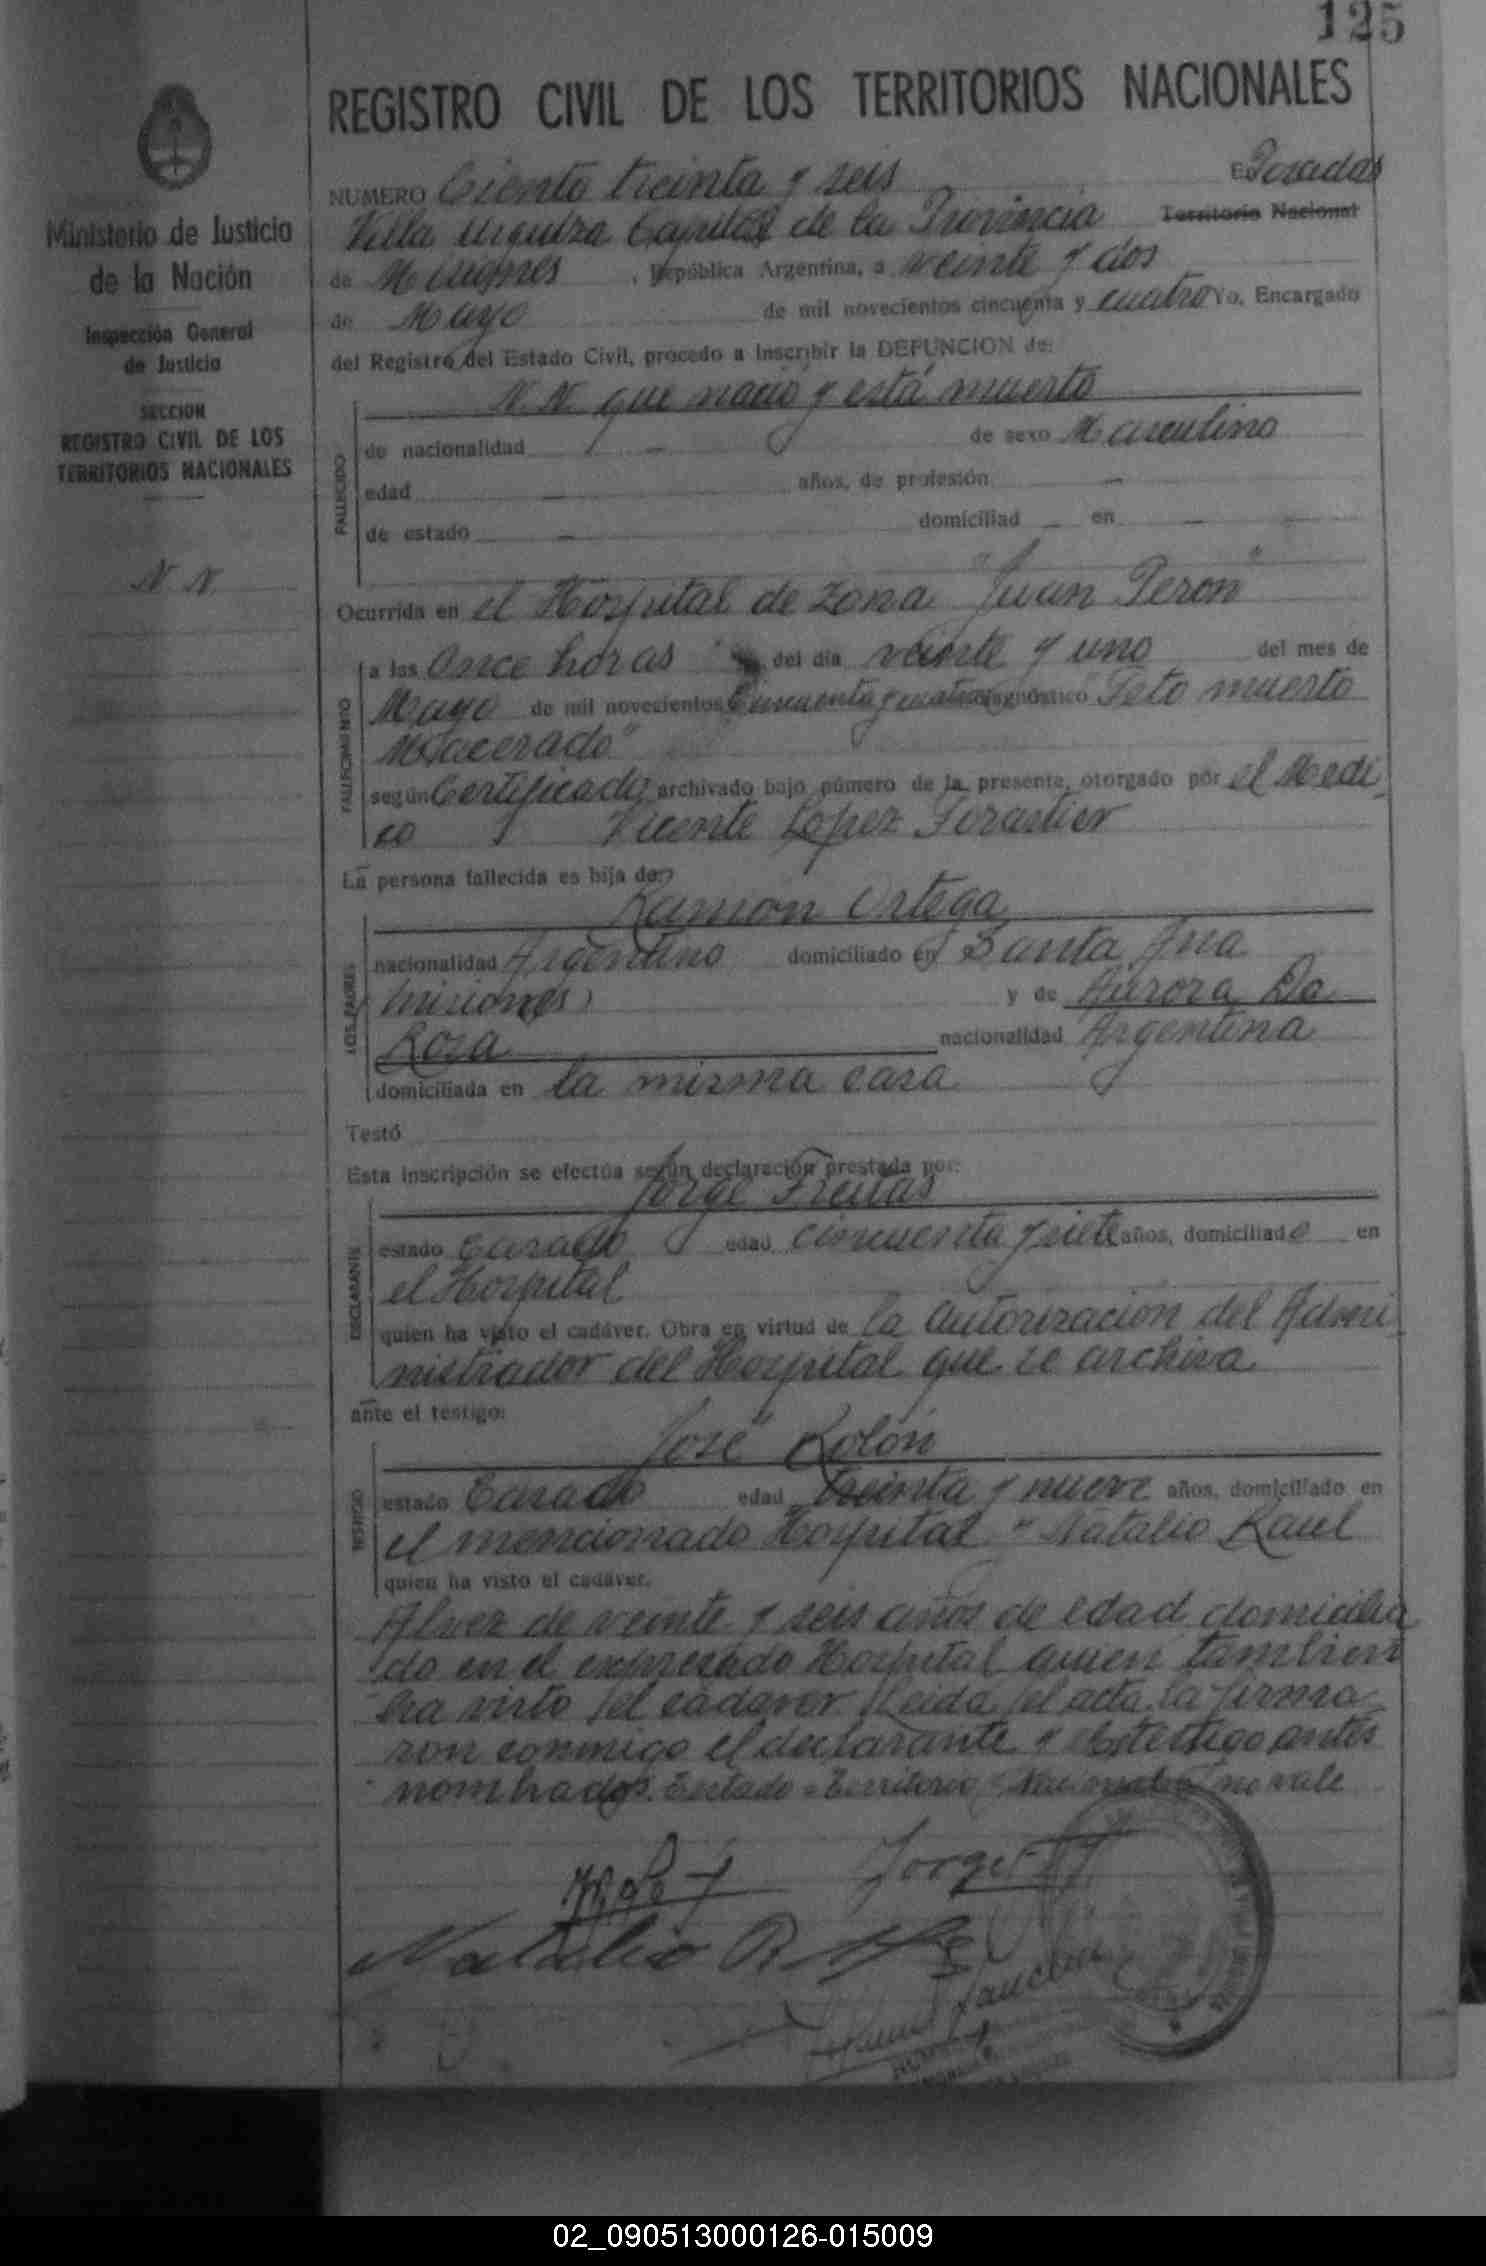 125
REGISTRO CIVIL DE LOS TERRITORIOS NACIONALES
Ministerio de Justicia
de la Nación
Inspección General
de Justicia
SECCION
REGISTRO CIVIL DE LOS
TERRITORIOS NACIONALES
N. N.
NUMERO Ciento treinta y seis En Posadas
Villa Urquiza Capital de la Provincia Territorio Nacional
de Misiones, República Argentina, a veinte y dos
de Mayo de mil novecientos cincuenta y cuatro Yo, Encargado
del Registro del Estado Civil, procedo a inscribir la DEFUNCION de:
N. N. que nació y está muerto
FALLECIDO
de nacionalidad — de sexo Masculino
edad — años, de profesión —
de estado — domiciliad — en —
Ocurrida en el Hospital de Zona "Juan Peron"
FALLECIMIENTO
a las Once horas del día veinte y uno del mes de
Mayo de mil novecientos Cincuenta y cuatro diagnóstico "Feto muerto
Macerado"
según Certificado archivado bajo número de la presente, otorgado por el Medi
co Vicente Lopez Forastier
La persona fallecida es hija de:
Ramon Ortega
LOS PADRES
nacionalidad Argentino domiciliado en Santa Ana
(Misiones) y de Aurora Da
Rosa nacionalidad Argentina
domiciliada en la misma casa
Testó
Esta inscripción se efectúa según declaración prestada por:
Jorge Freitas
DECLARANTE
estado Casado edad cincuenta y siete años, domiciliado en
el Hospital
quien ha visto el cadáver. Obra en virtud de la autorización del Admi
nistrador del Hospital que se archiva
ante el testigo:
José Rolón
TESTIGO
estado Casado edad treinta y nueve años, domiciliado en
el mencionado Hospital - Natalio Raul
quien ha visto el cadáver.
Alvez de veinte y seis años de edad domicilia
do en el expresado Hospital quien tambien
ha visto el cadaver. Leida el acta la firma
ron conmigo el declarante y el testigo antes
nombrados. Testado = Territorio Nacional no vale
Jorge
Natalio R
02_090513000126-015009